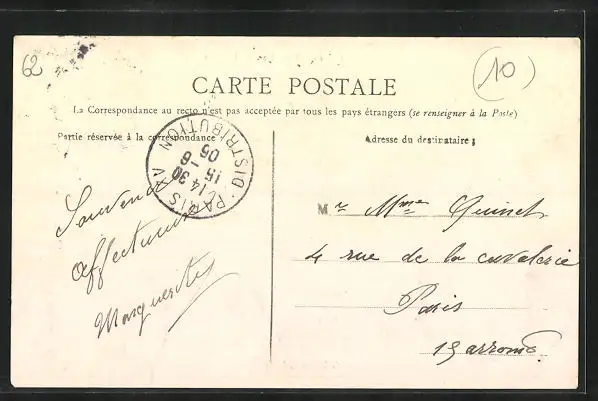 62
(10)
CARTE POSTALE
La Correspondance au recto n'est pas acceptée par tous les pays étrangers (se renseigner à la Poste)
Partie réservée à la correspondance
Adresse du destinataire :
PARIS VII DISTRIBUTION
14 30
15 - 6
05
Souvenir
Affectueux
Marguerite
Mr Mme Quinet
4 rue de la cavalerie
Paris
15 arrond.